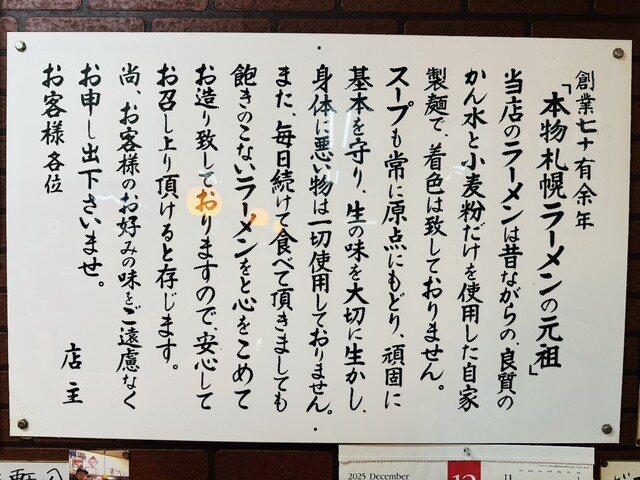 創業七十有余年
「本物札幌ラーメンの元祖」
当店のラーメンは昔ながらの、良質の
かん水と小麦粉だけを使用した自家
製麺で、着色は致しておりません。
スープも常に原点にもどり、頑固に
基本を守り、生の味を大切に生かし、
身体に悪い物は一切使用しておりません。
また、毎日続けて食べて頂きましても
飽きのこないラーメンをと心をこめて
お造り致しておりますので、安心して
お召し上り頂けると存じます。
尚、お客様のお好みの味をご遠慮なく
お申し出下さいませ。
お客様各位
店主
2025 December
12
11